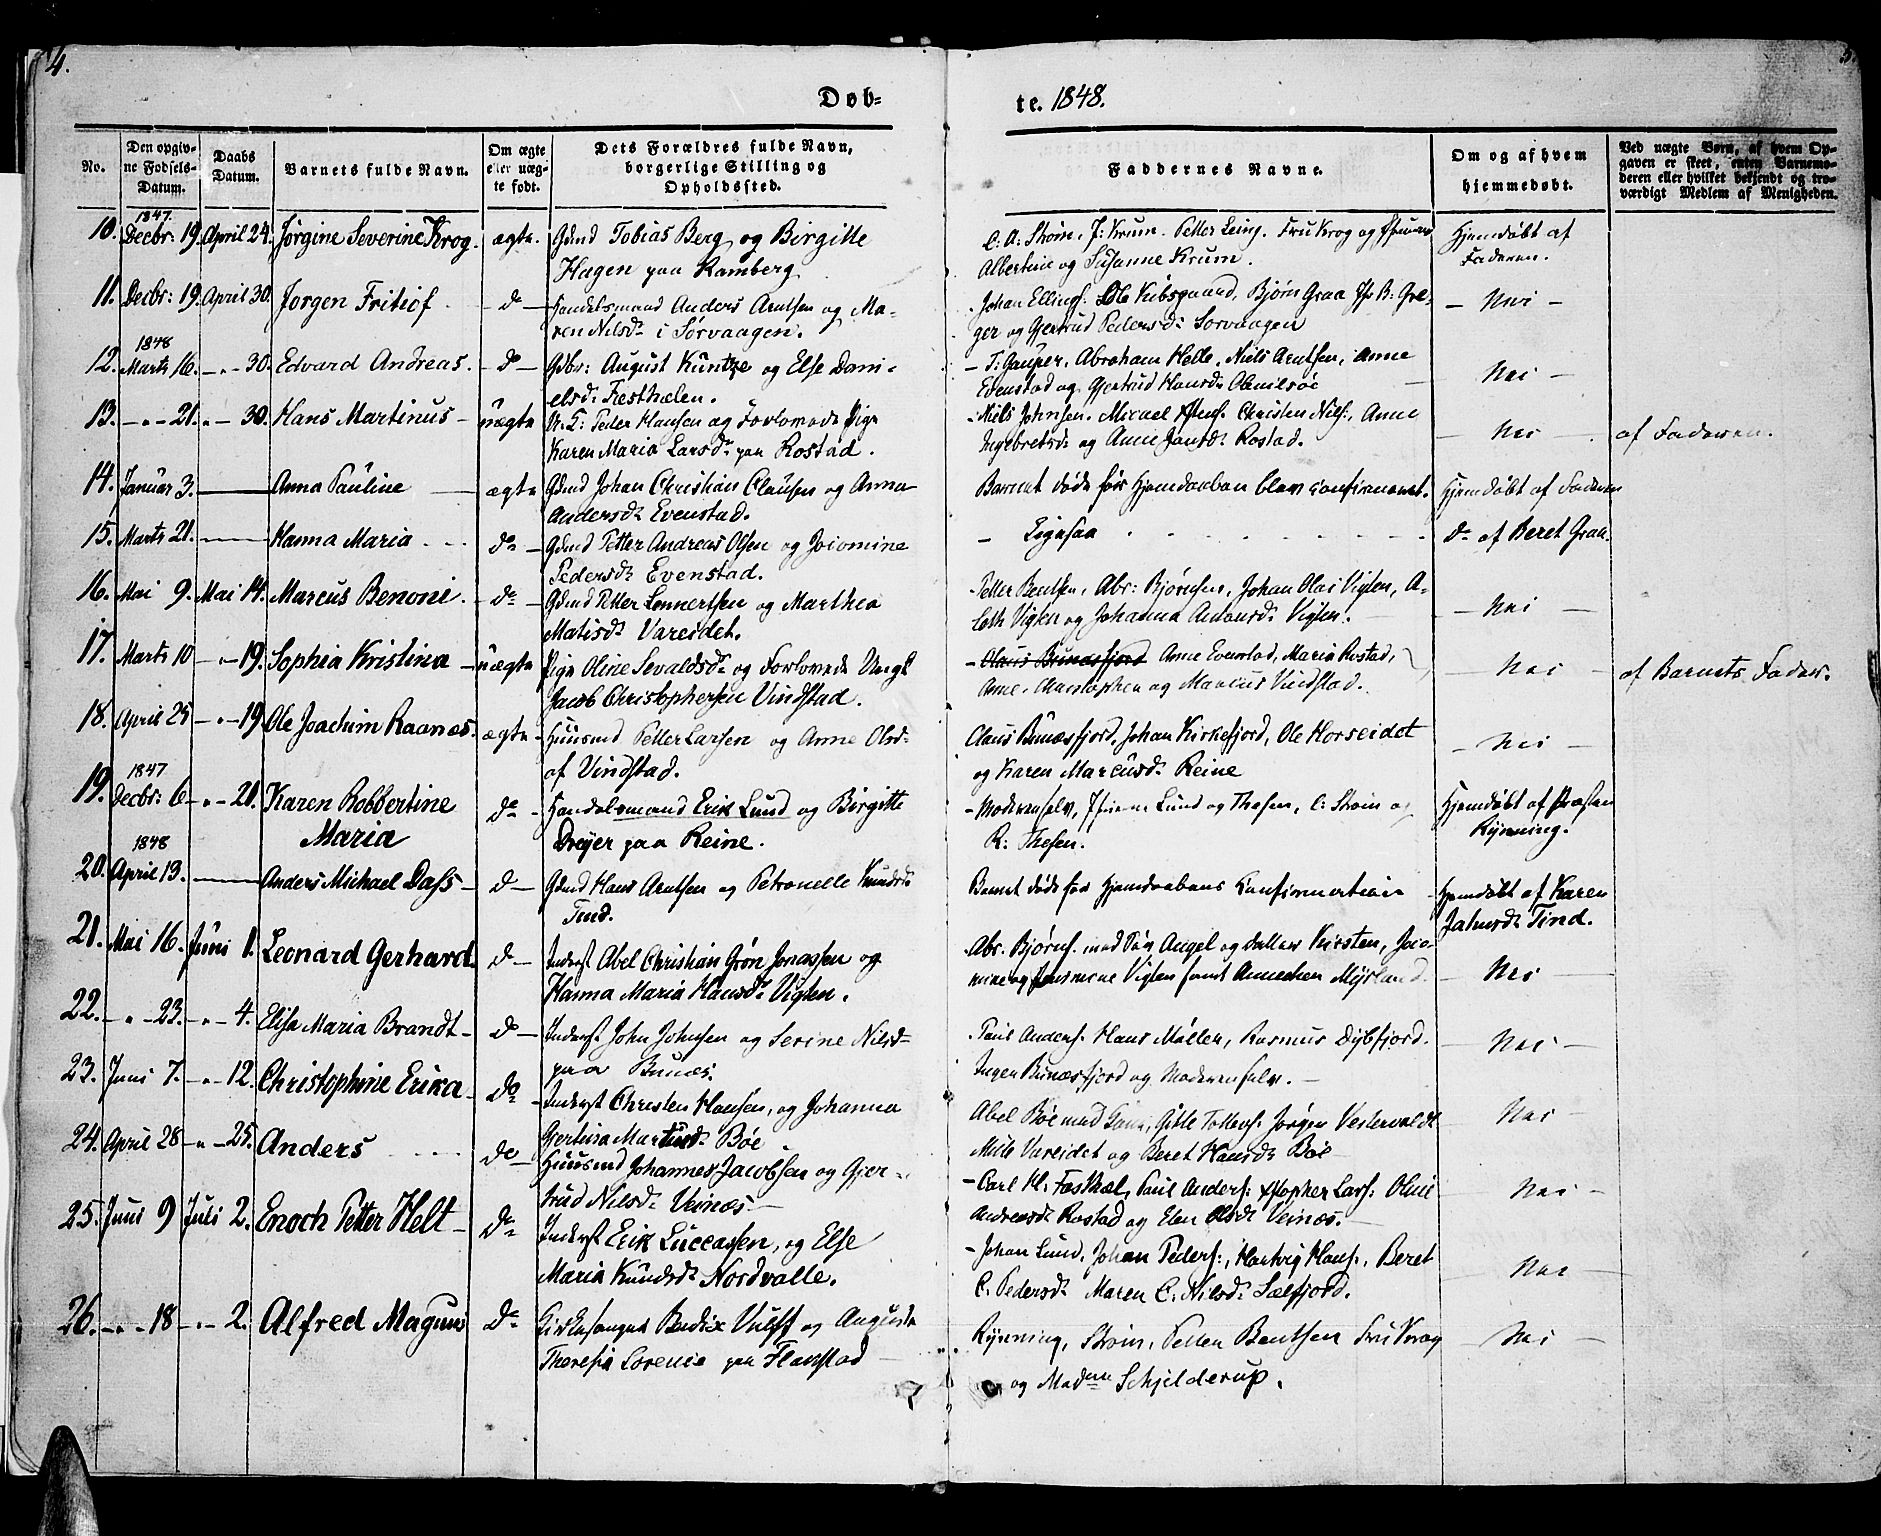 4.
5.
Døb-
te. 1848.
No.
Den opgiv-
ne Fødsels-
Datum.
Daabs
Datum.
Barnets fulde Navn.
Om ægte
eller uæg-
te født.
Dets Forældres fulde Navn,
borgerlige Stilling og
Opholdssted.
Faddernes Navne.
Om og af hvem
hjemmedøbt.
Ved uægte Børn, af hvem Op-
gaven er skeet, enten Barnemo-
deren eller hvilket bekjendt og tro-
værdigt Medlem af Menigheden.
1847.
10. Decbr. 19. April 24. Jørgine Severine Krog. ægte. Gdmd Tobias Berg og Birgitte
Hagen paa Ramberg
C. A. Strøm, J. Krum. Petter Leing. Fru Krog og
Albertine og Susanne Krum.
Hjemdøbt af
Faderen.
11. Decbr: 19. April 30. Jørgen Fritiof - do - Handelsmand Anders Arntsen og Ma-
ren Nilsdr i Sørvaagen.
Johan Ellings: Ole Kibsgaard, Bjørn Graa B: Gre-
ger og Gjertrud Pedersdr Sørvaagen
- Nei -
1848
12. Marts 16. - " - 30. Edvard Andreas. - do - Gdbr: August Kuntze og Else Dani-
elsdr Festhælen.
- T: Gauper, Abraham Helle, Niels Arntsen, Anne
Evenstad og Gjertrud Hansdr
Nei -
13. - " - 21. " - 30. Hans Martinus - uægte Peder Hansen og Forlovede Pige
Karen Maria Larsdr paa Rostad.
- Niels Johnsen. Micael Christen Nils:, Anne
Ingebretsdr og Anne Jensdr Rostad.
- Nei -
af Faderen.
14. Januar 3. Anna Pauline ægte Gdmd Johan Christian Clausen og Anna
Andersdr Evenstad.
Barnet døde før Hjemdaaben blev confirmeret.
Hjemdøbt af Faderen
15. Marts 21. Hanna Maria do - Gdmd Petter Andreas Olsen og Jocomine
Pedersdr Evenstad.
- Ligesaa
do af Beret Graa.
16. Mai 9. Mai 14. Marcus Benoni. - do - Gdmd Petter Lennertsen og Marthea
Matisdr Vareidet.
- Petter Bentsen, Abr: Bjørnsen, Johan Olai Vigten, A-
leth Vigten og Johanna Vigten.
- Nei -
17. Marts 10 - " - 19. Sophia Kristina - uægte Pige Oline Sevaldsdr og Forlovede Ungk.
Jacob Christophersen Vindstad.
- Anne Evenstad, Maria Rostad,
Anne, Christopher og Marcius Vindstad.
- Nei -
af Barnets Fader.
18. April 25 - " - 19. Ole Joachim Raanæs. ægte - Huusmd Petter Larsen og Anne Olsdr
af Vindstad.
Claus Bunæsfjord, Johan Kirkefjord, Ole Horseidet
og Karen Marcusdr Reine
- Nei -
1847
19. Decbr: 6 - " - 21. Karen Robbertine
Maria
do - Handelsmand Erik Lund og Birgitte
Dreyer paa Reine.
- Moderen selv, Lund og Thesen, C: Strøm og
R: Thesen.
Hjemdøbt af Præsten
Rynning.
1848
20. April 13. Anders Michael Dass - do - Gdmd Hans Arntsen og Petronelle Knudsdr
Tind.
Barnet døde før Hjemdaabens Confirmation
Hjemdøbt af Karen
Jahnsdr Tind.
21. Mai 16. Juni 1. Leonard Gerhard. do - Inderst Abel Christian Grøn Jonassen og
Hanna Maria Hansdr Vigten.
Abr. Bjørns. med Søn Angel og datter Kirsten, Joco-
mine og Vigten samt Annechen Myrland.
- Nei -
22. - " - 23. - " - 4. Elisa Maria Brandt - do - Inderst John Johnsen og Serine Nilsdr
paa Bunæs.
Paul Anders: Hans Møller, Rasmus Dybfjord.
Inger Bunæsfjord og Moderen selv. -
- Nei -
23. Juni 7. - " - 12. Christophine Erika - do - Inderst Christen Hansen, og Johanna
Gjertina Bøe
Abel Bøe med Gitte Tollefs: Jørgen Vestervaldt
Mile Vareidet og Beret Hansdr Bøe
- Nei -
24. April 28 - " - 25. Anders do - Huusmd Johannes Jacobsen og Gjer-
trud Nilsdr Veinæs -
- Carl H. Paul Anders: Xstopher Lars: Oline
Andreasdr Rostad og Elen Olsdr Veinæs. -
- Nei -
25. Juni 9 Juli 2. Enoch Petter Helt - do Inderst Erik Luccassen, og Else
Maria Knudsdr Nordvalle.
- Johan Lund, Johan Peders:, Hartvig Hans:, Beret
C. Pedersdr Maren C. Nilsdr Sælfjord.
- Nei -
26. - " - 18 - " - 2. Alfred Magnus do Kirkesanger Bendix Vulff og Augusta
Theresia Lorenie paa Flagstad -
Rynning, Strøm, Petter Bentsen Fru Krog
og Madme Schjelderup.
- Nei -